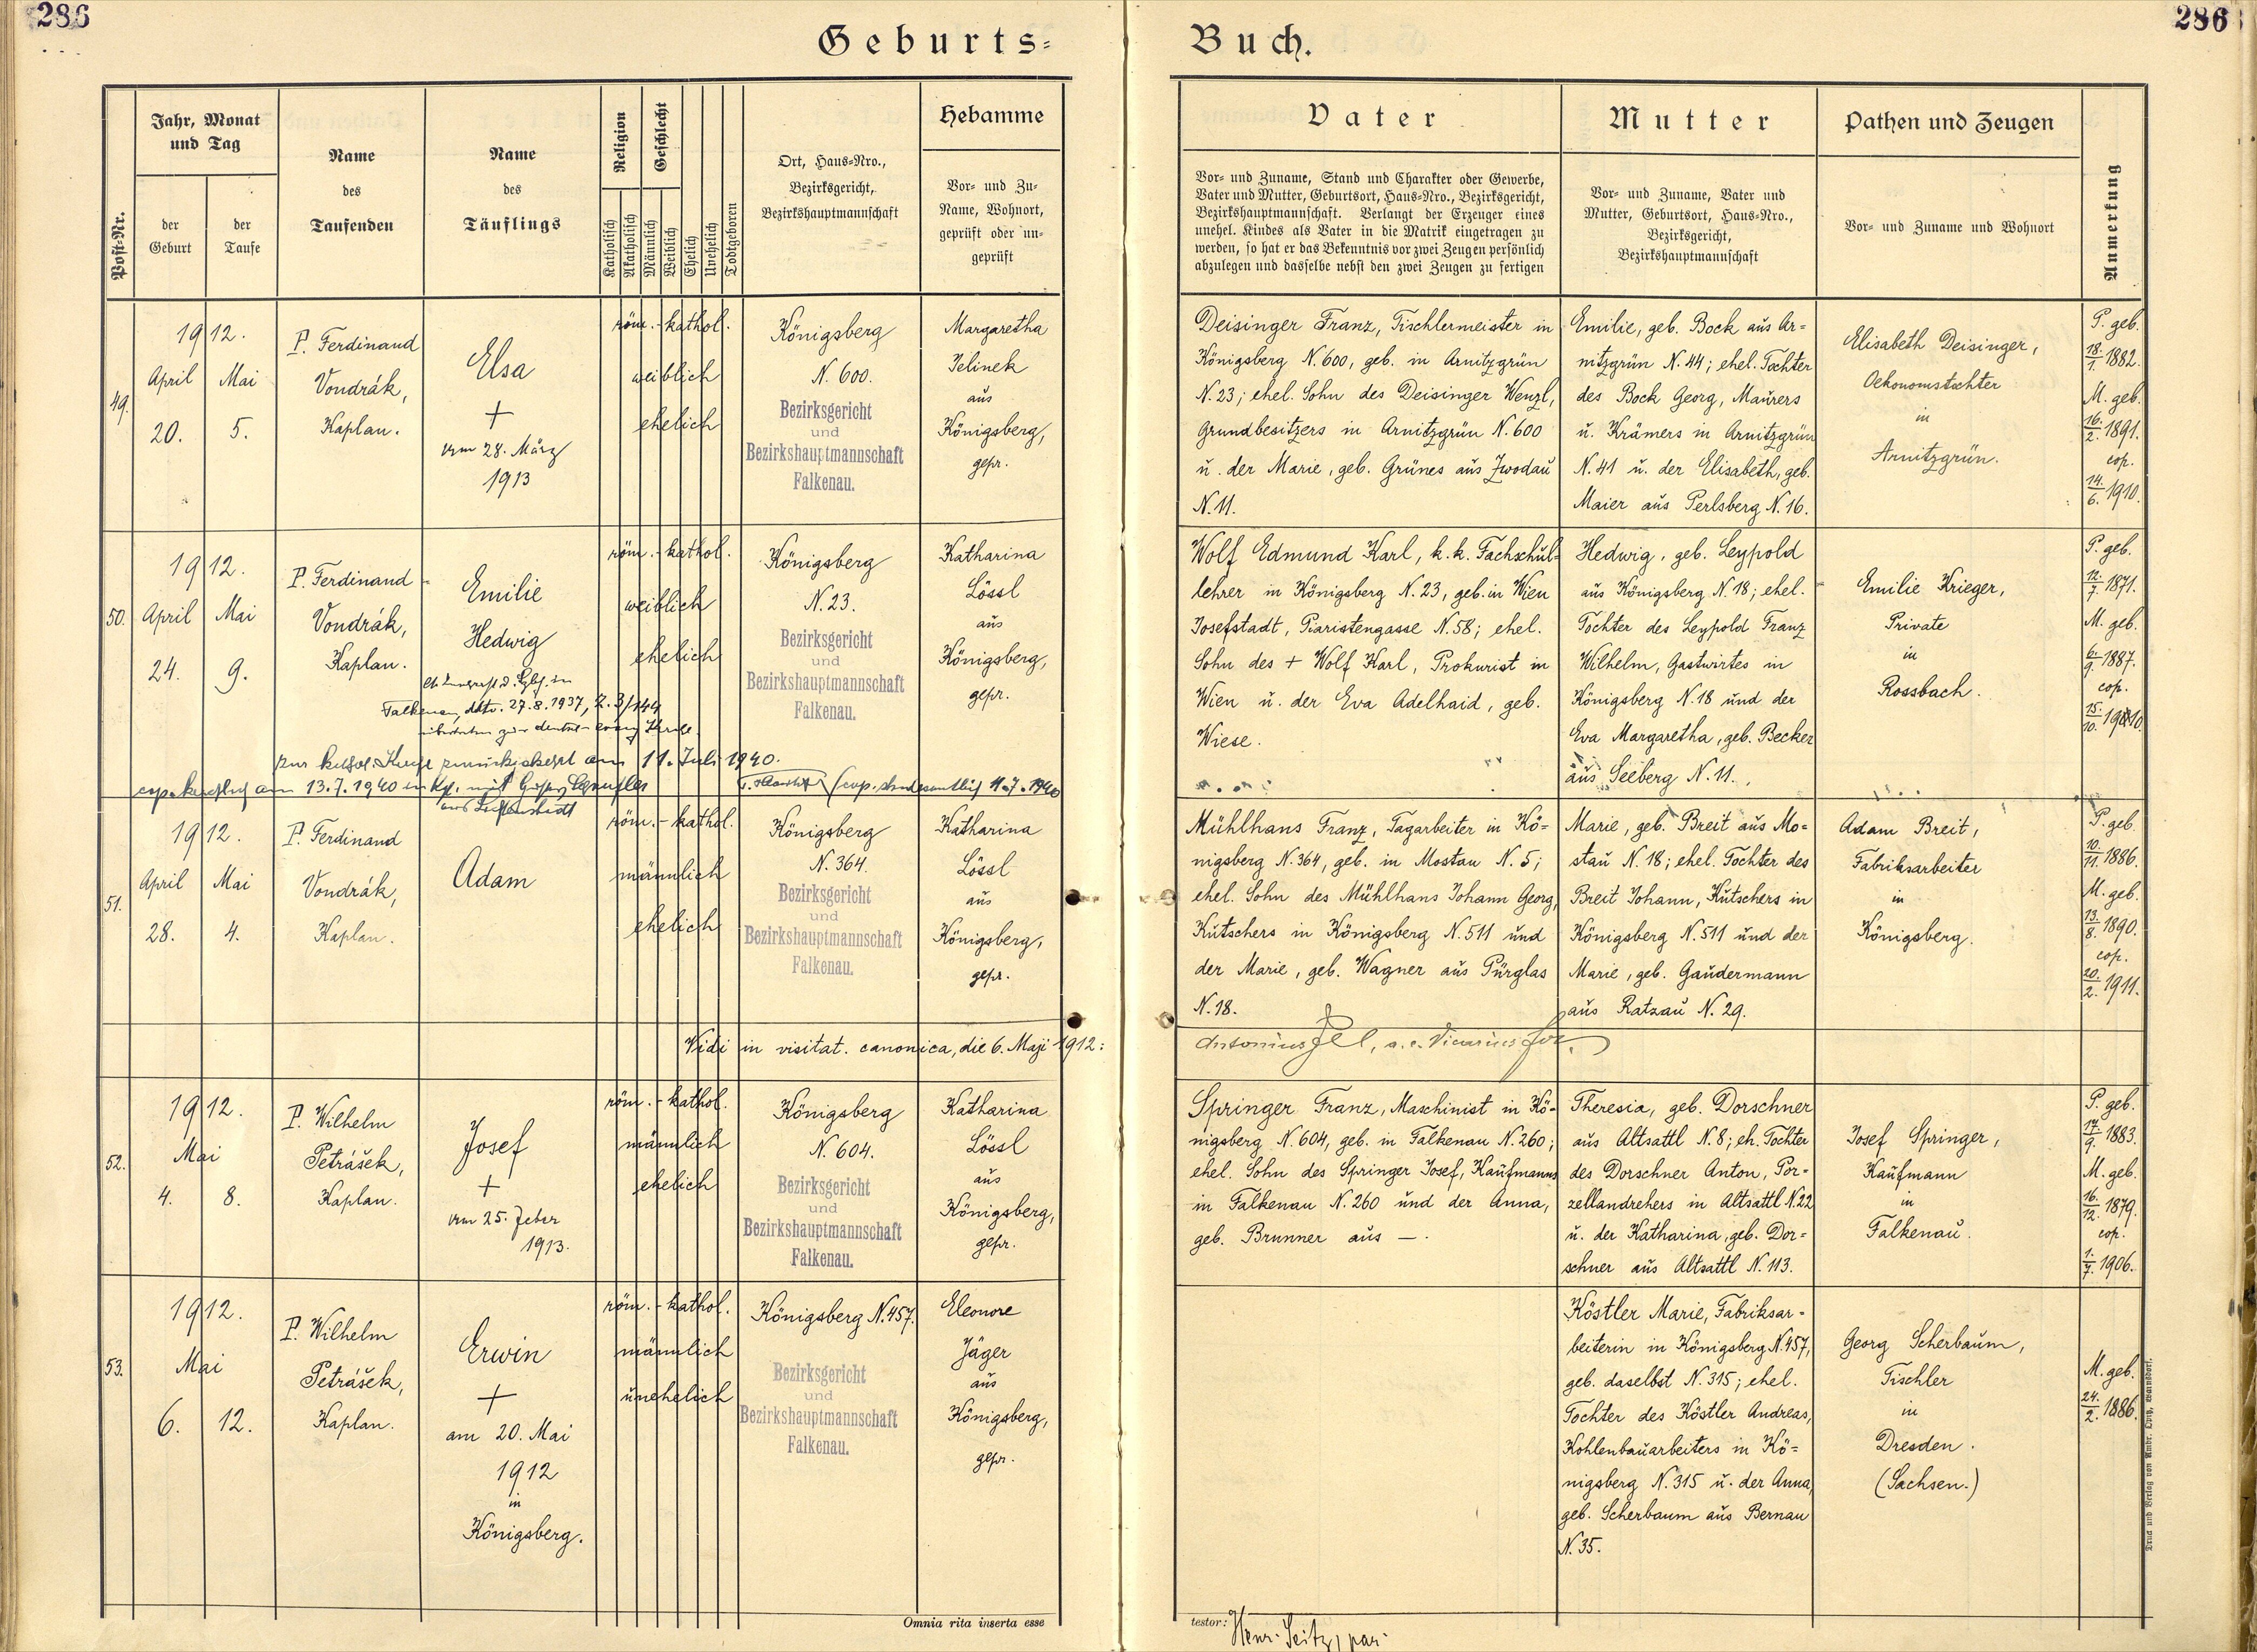 286
286
Geburts=
Buch.
Post-Nr.
Jahr, Monat
und Tag
der
Geburt
der
Taufe
Name
des
Taufenden
Name
des
Täuflings
Religion
Katholisch
Akatholisch
Geschlecht
Männlich
Weiblich
Ehelich
Unehelich
Todtgeboren
Ort, Haus=Nro.,
Bezirksgericht,
Bezirkshauptmannschaft
Hebamme
Vor= und Zu=
Name, Wohnort,
geprüft oder un=
geprüft
Vater
Vor= und Zuname, Stand und Charakter oder Gewerbe,
Vater und Mutter, Geburtsort, Haus=Nro., Bezirksgericht,
Bezirkshauptmannschaft. Verlangt der Erzeuger eines
unehel. Kindes als Vater in die Matrik eingetragen zu
werden, so hat er das Bekenntnis vor zwei Zeugen persönlich
abzulegen und dasselbe nebst den zwei Zeugen zu fertigen
Mutter
Vor= und Zuname, Vater und
Mutter, Geburtsort, Haus=Nro.,
Bezirksgericht,
Bezirkshauptmannschaft
Pathen und Zeugen
Vor= und Zuname und Wohnort
Anmerkung
49.
1912.
April
20.
Mai
5.
P. Ferdinand
Vondrák,
Kaplan.
Elsa
+
am 28. März
1913
röm.-kathol.
weiblich
ehelich
Königsberg
N. 600.
Bezirksgericht
und
Bezirkshauptmannschaft
Falkenau.
Margaretha
Jelinek
aus
Königsberg,
gepr.
Deisinger Franz, Tischlermeister in
Königsberg N. 600, geb. in Arnitzgrün
N. 23; ehel. Sohn des Deisinger Wenzl,
Grundbesitzers in Arnitzgrün N. 600
u. der Marie, geb. Grünes aus Zwodau
N. 11.
Emilie, geb. Bock aus Ar=
nitzgrün N. 44; ehel. Tochter
des Bock Georg, Maurers
u. Krämers in Arnitzgrün
N. 41 u. der Elisabeth, geb.
Maier aus Perlsberg N. 16.
Elisabeth Deisinger,
Oekonomstochter
in
Arnitzgrün.
P. geb.
18./1. 1882.
M. geb.
16./2. 1891.
cop.
14./6. 1910.
50.
1912.
April
24.
Mai
9.
P. Ferdinand
Vondrák,
Kaplan.
Emilie
Hedwig
Falkenau, dto. 27.8.1937, Z. 3/144
zur kathol. Kirche zurückgekehrt am 11. Juli 1940.
cop. kirchlich am 13.7.1940 in Kg. mit
(cop. standesamtlich 11.7.1940
röm.-kathol.
weiblich
ehelich
Königsberg
N. 23.
Bezirksgericht
und
Bezirkshauptmannschaft
Falkenau.
Katharina
Lössl
aus
Königsberg,
gepr.
Wolf Edmund Karl, k. k. Fachschul=
lehrer in Königsberg N. 23, geb. in Wien
Josefstadt, Piaristengasse N. 58; ehel.
Sohn des + Wolf Karl, Prokurist in
Wien u. der Eva Adelhaid, geb.
Wiese.
Hedwig, geb. Leypold
aus Königsberg N. 18; ehel.
Tochter des Leypold Franz
Wilhelm, Gastwirtes in
Königsberg N. 18 und der
Eva Margaretha, geb. Becker
aus Seeberg N. 11.
Emilie Krieger,
Private
in
Rossbach.
P. geb.
12./7. 1871.
M. geb.
6./9. 1887.
cop.
15./10. 1910.
51.
1912.
April
28.
Mai
4.
P. Ferdinand
Vondrák,
Kaplan.
Adam
röm.-kathol.
männlich
ehelich
Königsberg
N. 364.
Bezirksgericht
und
Bezirkshauptmannschaft
Falkenau.
Katharina
Lössl
aus
Königsberg,
gepr.
Mühlhans Franz, Tagarbeiter in Kö=
nigsberg N. 364, geb. in Mostau N. 5;
ehel. Sohn des Mühlhans Johann Georg,
Kutschers in Königsberg N. 511 und
der Marie, geb. Wagner aus Pürglas
N. 18.
Marie, geb. Breit aus Mo=
stau N. 18; ehel. Tochter des
Breit Johann, Kutschers in
Königsberg N. 511 und der
Marie, geb. Gaudermann
aus Ratzau N. 29.
Adam Breit,
Fabriksarbeiter
in
Königsberg.
P. geb.
10./11. 1886.
M. geb.
13./8. 1890.
cop.
20./2. 1911.
Vidi in visitat. canonica, die 6. Maji 1912:
Antonius
52.
1912.
Mai
4.
8.
P. Wilhelm
Petrášek,
Kaplan.
Josef
+
am 25. Feber
1913.
röm.-kathol.
männlich
ehelich
Königsberg
N. 604.
Bezirksgericht
und
Bezirkshauptmannschaft
Falkenau.
Katharina
Lössl
aus
Königsberg,
gepr.
Springer Franz, Maschinist in Kö=
nigsberg N. 604, geb. in Falkenau N. 260;
ehel. Sohn des Springer Josef, Kaufmanns
in Falkenau N. 260 und der Anna,
geb. Brunner aus —.
Theresia, geb. Dorschner
aus Altsattl N. 8; eh. Tochter
des Dorschner Anton, Por=
zellandrehers in Altsattl N. 22
u. der Katharina, geb. Dor=
schner aus Altsattl N. 113.
Josef Springer,
Kaufmann
in
Falkenau.
P. geb.
17./9. 1883.
M. geb.
16./12. 1879.
cop.
1./7. 1906.
53.
1912.
Mai
6.
12.
P. Wilhelm
Petrášek,
Kaplan.
Erwin
+
am 20. Mai
1912
in
Königsberg.
röm.-kathol.
männlich
unehelich
Königsberg N. 457.
Bezirksgericht
und
Bezirkshauptmannschaft
Falkenau.
Eleonore
Jäger
aus
Königsberg,
gepr.
Köstler Marie, Fabriksar=
beiterin in Königsberg N. 457,
geb. daselbst N. 315; ehel.
Tochter des Köstler Andreas,
Kohlenbauarbeiters in Kö=
nigsberg N. 315 u. der Anna,
geb. Scherbaum aus Bernau
N. 35.
Georg Scherbaum,
Tischler
in
Dresden.
(Sachsen.)
M. geb.
24./2. 1886.
Omnia rita inserta esse
testor: Henr. Seitz, par.
Druck und Verlag von Ambr. Opitz, Warnsdorf.